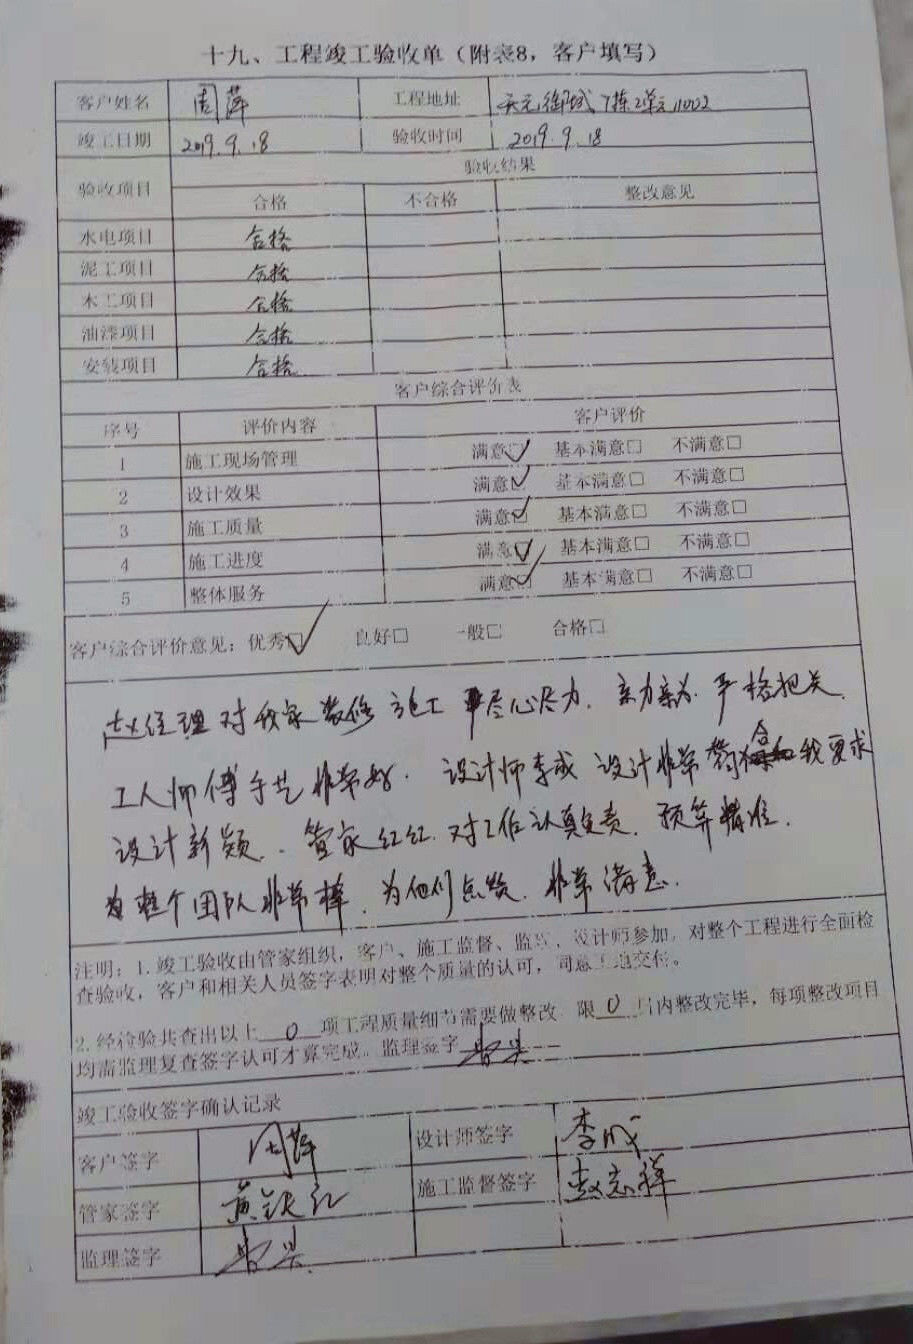 十九、工程竣工验收单（附表8，客户填写）
客户姓名 周萍 工程地址 天元御城7栋2单元11002
竣工日期 2019.9.18 验收时间 2019.9.18
验收项目 验收结果
合格 不合格 整改意见
水电项目 合格
泥工项目 合格
木工项目 合格
油漆项目 合格
安装项目 合格
客户综合评价表
序号 评价内容 客户评价
1 施工现场管理 满意☑ 基本满意□ 不满意□
2 设计效果 满意☑ 基本满意□ 不满意□
3 施工质量 满意☑ 基本满意□ 不满意□
4 施工进度 满意☑ 基本满意□ 不满意□
5 整体服务 满意☑ 基本满意□ 不满意□
客户综合评价意见：优秀☑ 良好□ 一般□ 合格□
赵经理对我家装修施工尽心尽力、亲力亲为、严格把关、
工人师傅手艺非常好. 设计师李成设计非常符合我要求
设计新颖.、管家红红.对工作认真负责.预算精准.
为整个团队非常棒、为他们点赞.非常满意.
注明：1.竣工验收由管家组织，客户、施工监督、监理、设计师参加，对整个工程进行全面检
查验收，客户和相关人员签字表明对整个质量的认可，同意工地交付。
2.经检验共查出以上 0 项工程质量细节需要做整改 限 0 日内整改完毕，每项整改项目
均需监理复查签字认可才算完成。监理签字
竣工验收签字确认记录
客户签字 周萍 设计师签字 李成
管家签字 施工监督签字 赵志祥
监理签字